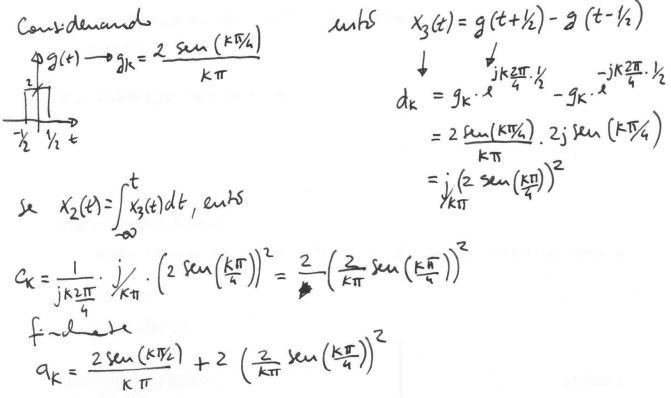 Considerando
g(t) → gk = 2 sen(kπ/4) / kπ
2
-1/2 1/2 t
então x3(t) = g(t+1/2) - g(t-1/2)
dk = gk · e^{jk 2π/4 · 1/2} - gk · e^{-jk 2π/4 · 1/2}
= 2 sen(kπ/4) / kπ · 2j sen(kπ/4)
= j/kπ (2 sen(kπ/4))^2
se x2(t) = ∫_{-∞}^{t} x3(t) dt, então
ck = 1 / (jk 2π/4) · j/kπ · (2 sen(kπ/4))^2 = 2 (2/kπ sen(kπ/4))^2
finalmente
ak = 2 sen(kπ/2) / kπ + 2 (2/kπ sen(kπ/4))^2